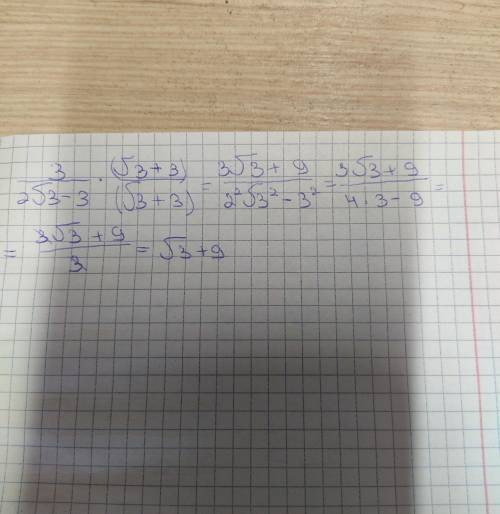 3/(2√3-3) · (√3+3)/(√3+3) = (3√3+9)/(2²√3²-3²) = (3√3+9)/(4·3-9) =
= (3√3+9)/3 = √3+9